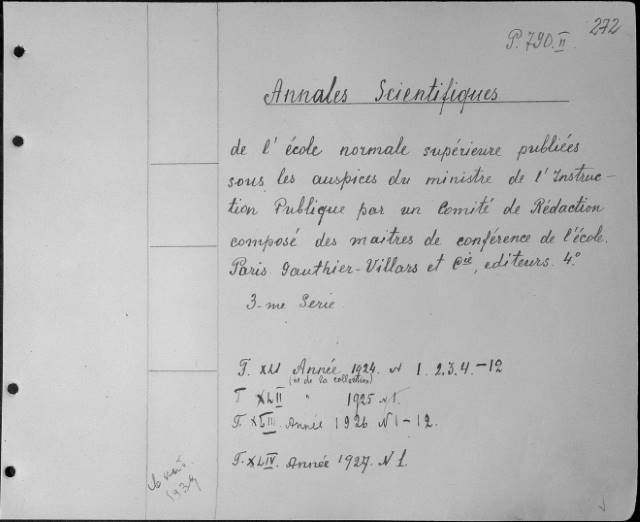 272
P. 790.II
Annales Scientifiques
de l' école normale supérieure publiées
sous les auspices du ministre de l'Instruc-
tion Publique par un Comité de Rédaction
composé des maitres de conférence de l'école.
Paris. Gauthier-Villars et Cie, editeurs. 4°
3-me Serie
T. XLI Année 1924. N 1. 2. 3. 4. - 12
(de la collection)
T XLII " 1925 N 1.
T. XLIII. Année 1926 N 1 - 12.
T. XLIV. Année 1927. N 1.
1939